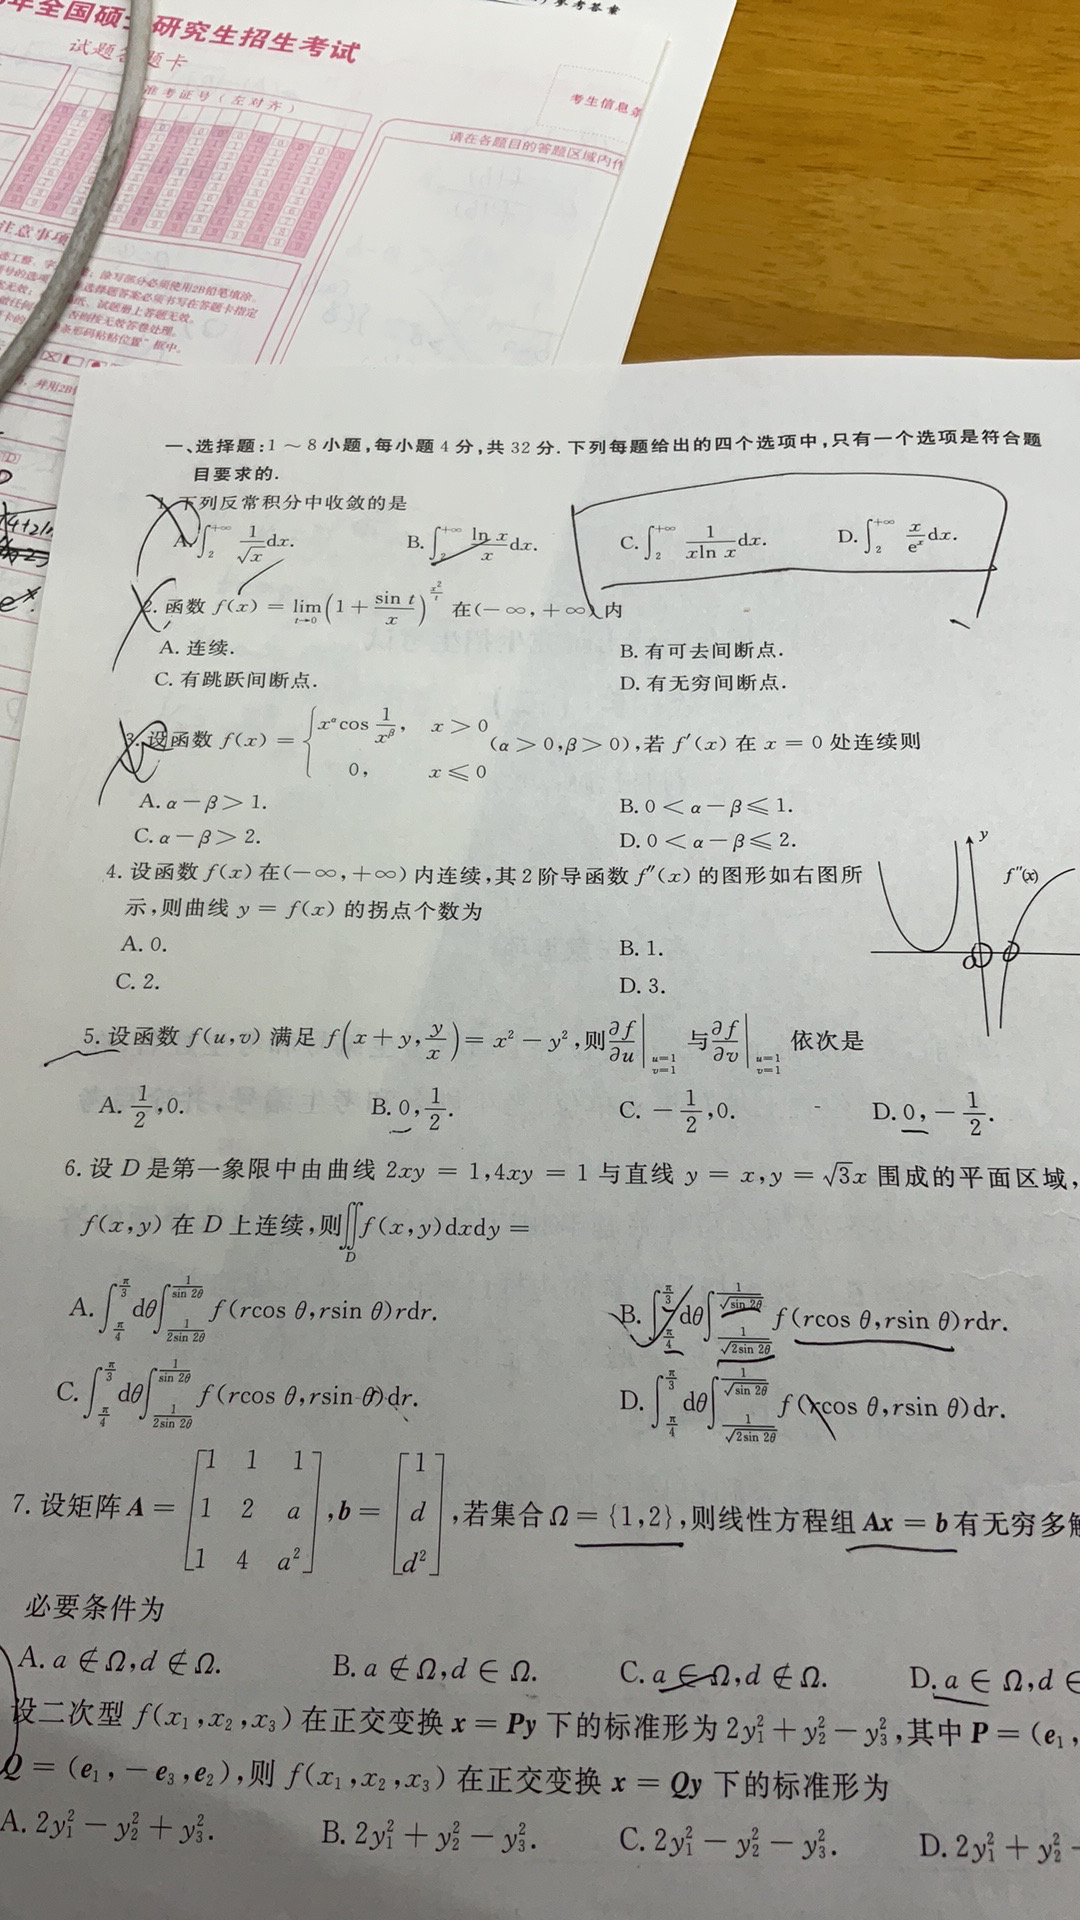 参考答案
年全国硕士研究生招生考试
试题答题卡
准考证号(左对齐)
考生信息条
请在各题目的答题区域内作
注意事项
涂写部分必须使用2B铅笔填涂。
选择题答案必须书写在答题卡指定
试题册上答题无效。
否则按无效答卷处理。
条形码粘贴位置"框中。
一、选择题:1～8小题,每小题4分,共32分.下列每题给出的四个选项中,只有一个选项是符合题
目要求的.
1. 下列反常积分中收敛的是
A. ∫₂^{+∞} 1/√x dx. B. ∫₂^{+∞} ln x/x dx. C. ∫₂^{+∞} 1/(xln x) dx. D. ∫₂^{+∞} x/eˣ dx.
2. 函数 f(x) = lim_{t→0} (1 + sin t/x)^{x²/t} 在(-∞,+∞)内
A. 连续. B. 有可去间断点.
C. 有跳跃间断点. D. 有无穷间断点.
3. 设函数 f(x) = { x^α cos 1/x^β, x > 0
0, x ≤ 0 (α > 0,β > 0),若 f′(x) 在 x = 0 处连续则
A. α-β > 1. B. 0 < α-β ≤ 1.
C. α-β > 2. D. 0 < α-β ≤ 2.
4. 设函数 f(x) 在(-∞,+∞)内连续,其2阶导函数 f″(x) 的图形如右图所
示,则曲线 y = f(x) 的拐点个数为
y
f″(x)
A. 0. B. 1.
C. 2. D. 3.
5. 设函数 f(u,v) 满足 f(x + y, y/x) = x² - y²,则 ∂f/∂u |_{u=1, v=1} 与 ∂f/∂v |_{u=1, v=1} 依次是
A. 1/2,0. B. 0,1/2. C. -1/2,0. D. 0,-1/2.
6. 设 D 是第一象限中由曲线 2xy = 1,4xy = 1 与直线 y = x,y = √3x 围成的平面区域,
f(x,y) 在 D 上连续,则∬_D f(x,y)dxdy =
A. ∫_{π/4}^{π/3} dθ ∫_{1/(2sin 2θ)}^{1/sin 2θ} f(rcos θ,rsin θ)rdr. B. ∫_{π/4}^{π/3} dθ ∫_{1/√(2sin 2θ)}^{1/√(sin 2θ)} f(rcos θ,rsin θ)rdr.
C. ∫_{π/4}^{π/3} dθ ∫_{1/(2sin 2θ)}^{1/sin 2θ} f(rcos θ,rsin θ)dr. D. ∫_{π/4}^{π/3} dθ ∫_{1/√(2sin 2θ)}^{1/√(sin 2θ)} f(rcos θ,rsin θ)dr.
7. 设矩阵 A = [1 1 1; 1 2 a; 1 4 a²], b = [1; d; d²],若集合 Ω = {1,2},则线性方程组 Ax = b 有无穷多解
必要条件为
A. a ∉ Ω,d ∉ Ω. B. a ∉ Ω,d ∈ Ω. C. a ∈ Ω,d ∉ Ω. D. a ∈ Ω,d ∈
设二次型 f(x₁,x₂,x₃) 在正交变换 x = Py 下的标准形为 2y₁² + y₂² - y₃²,其中 P = (e₁,
Q = (e₁,-e₃,e₂),则 f(x₁,x₂,x₃) 在正交变换 x = Qy 下的标准形为
A. 2y₁² - y₂² + y₃². B. 2y₁² + y₂² - y₃². C. 2y₁² - y₂² - y₃². D. 2y₁² + y₂²